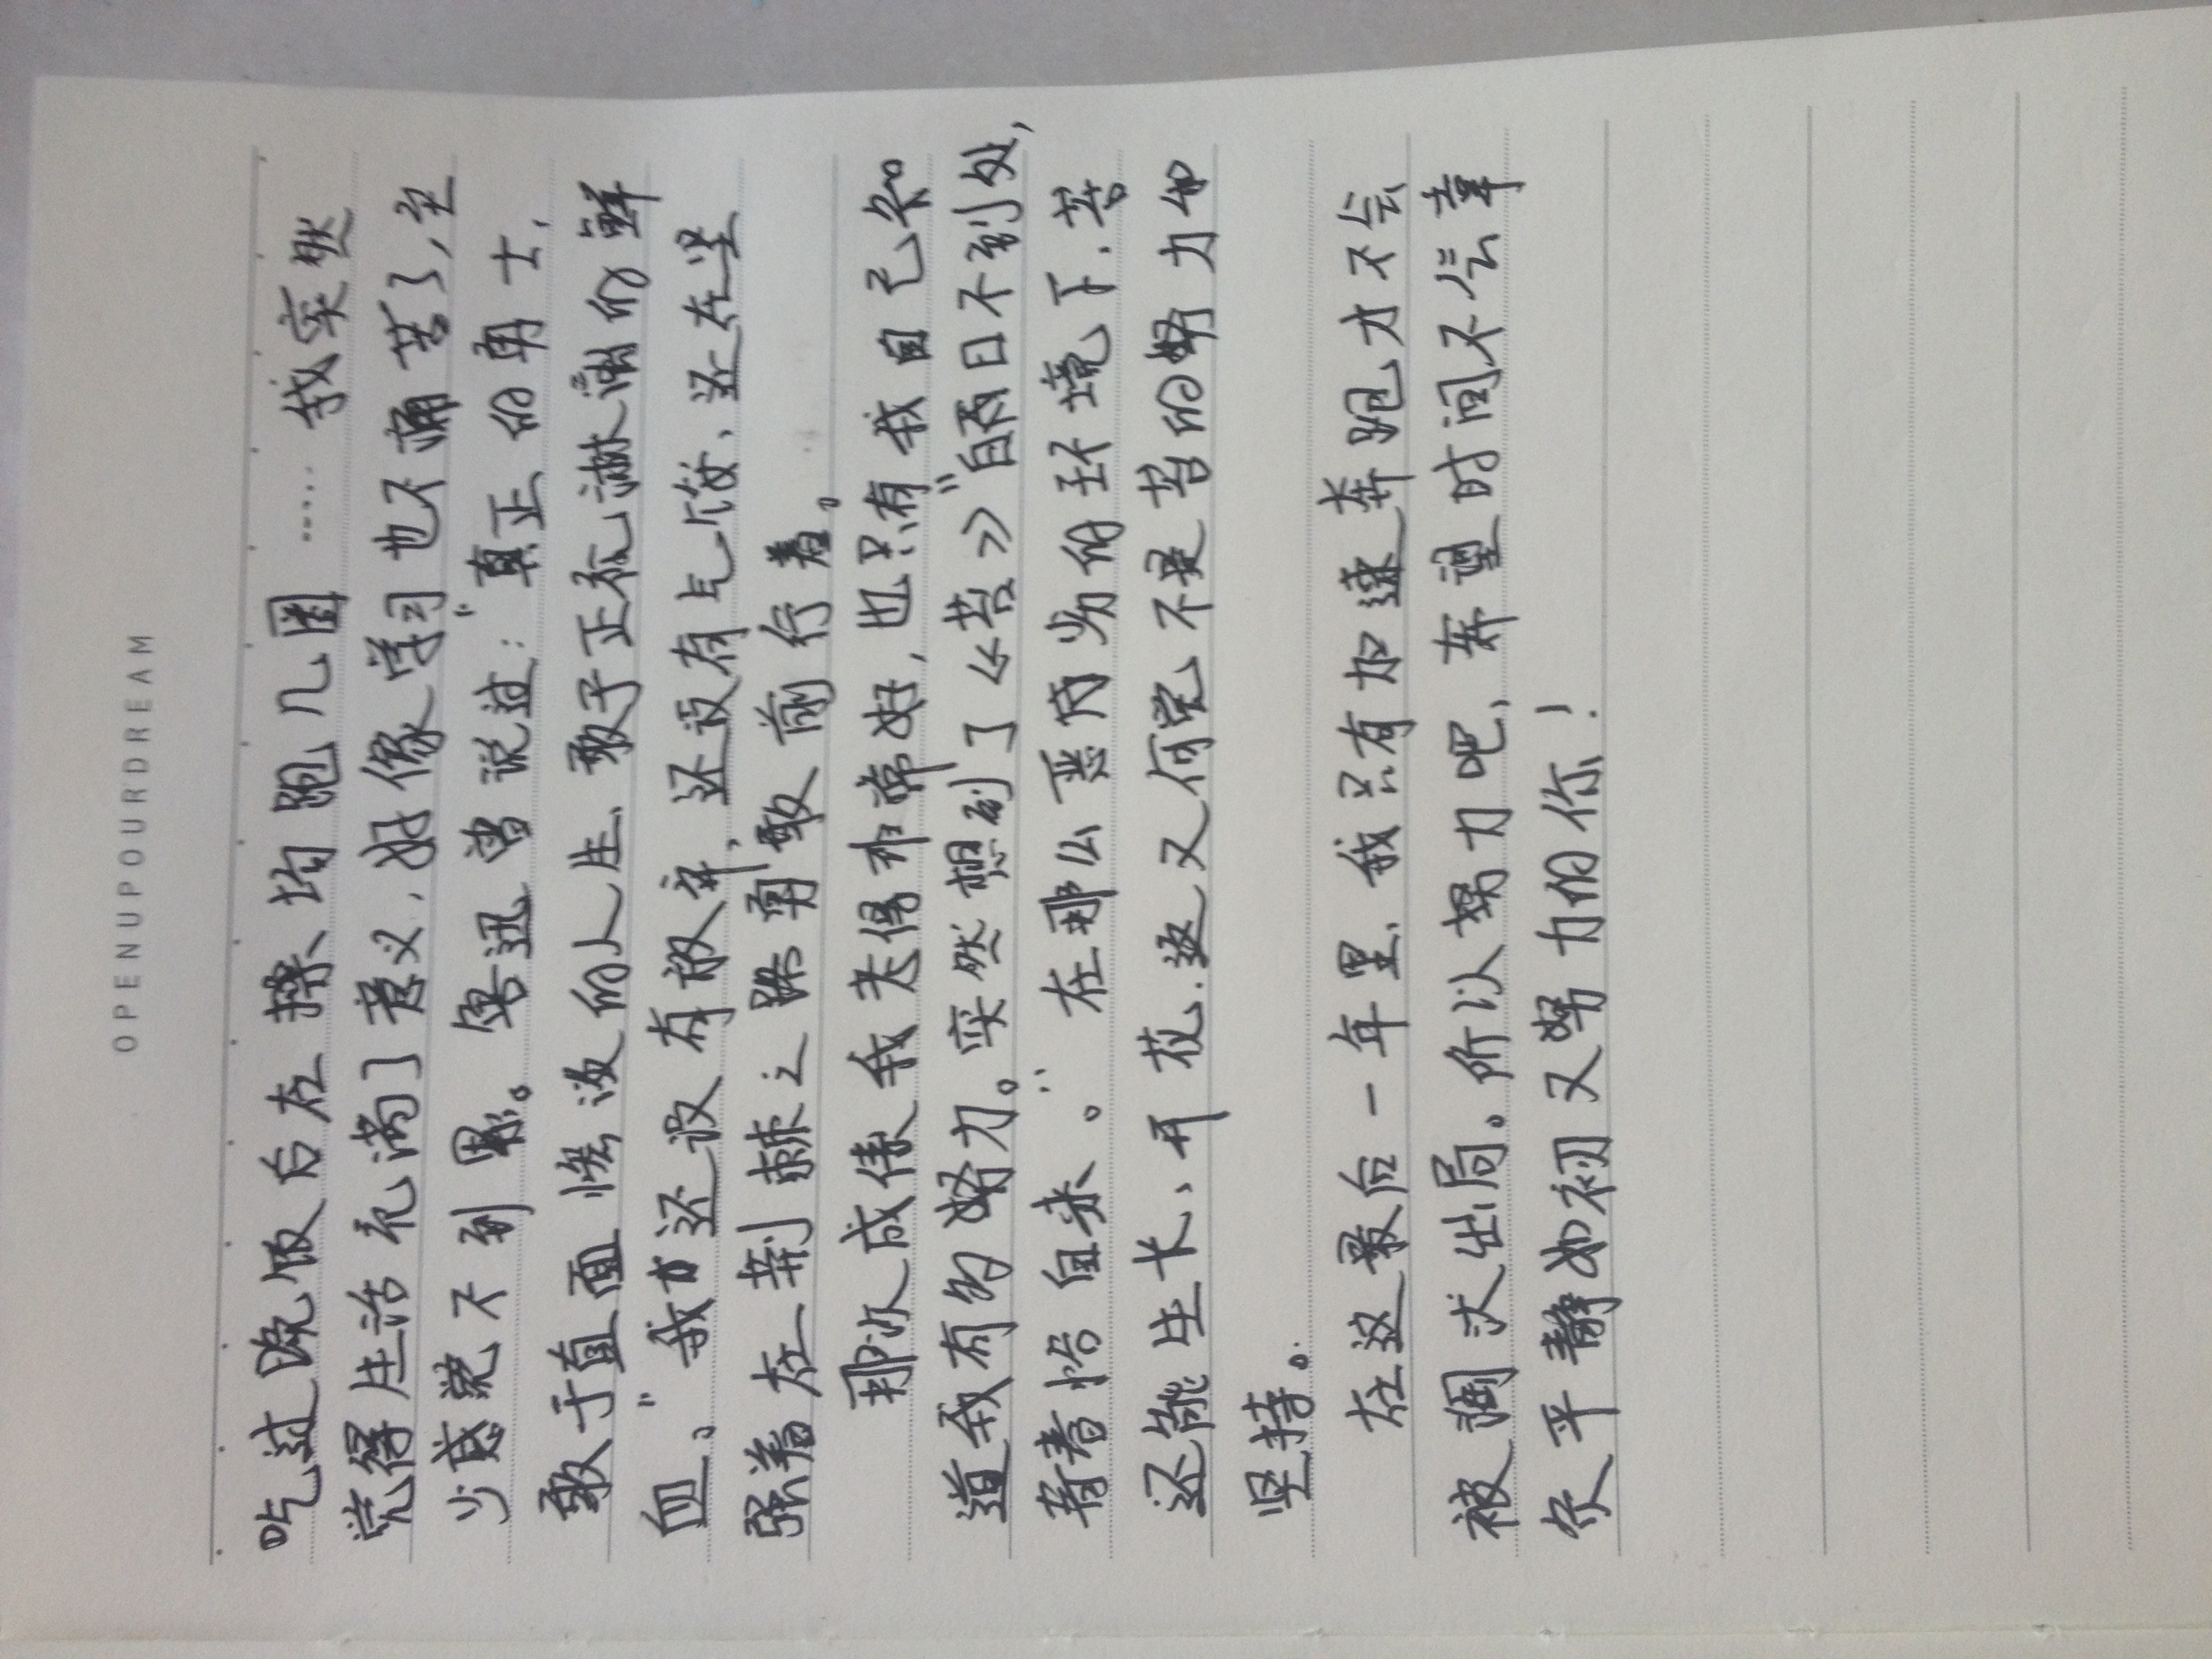 OPENUPOURDREAM
吃过晚饭后在操场跑几圈……我突然
觉得生活充满了意义，好像学习也不痛苦了，至
少感觉不到累。鲁迅曾说过：“真正的勇士，
敢于直面惨淡的人生、敢于正视淋漓的鲜
血。”我才还没有放弃，还没有气馁，还在坚
强着在荆棘之路勇敢前行着。
那次成绩我考得非常好，也只有我自己知
道我有的努力。突然想到了《苔》“白日不到处，
青春恰自来。”在那么恶劣的环境下，苔
还能生长、开花，这又何尝不是苔的努力和
坚持。
在这最后一年里，我只有加速奔跑才不会
被淘汰出局。所以努力吧，希望时间不会辜
负平静如初又努力的你！